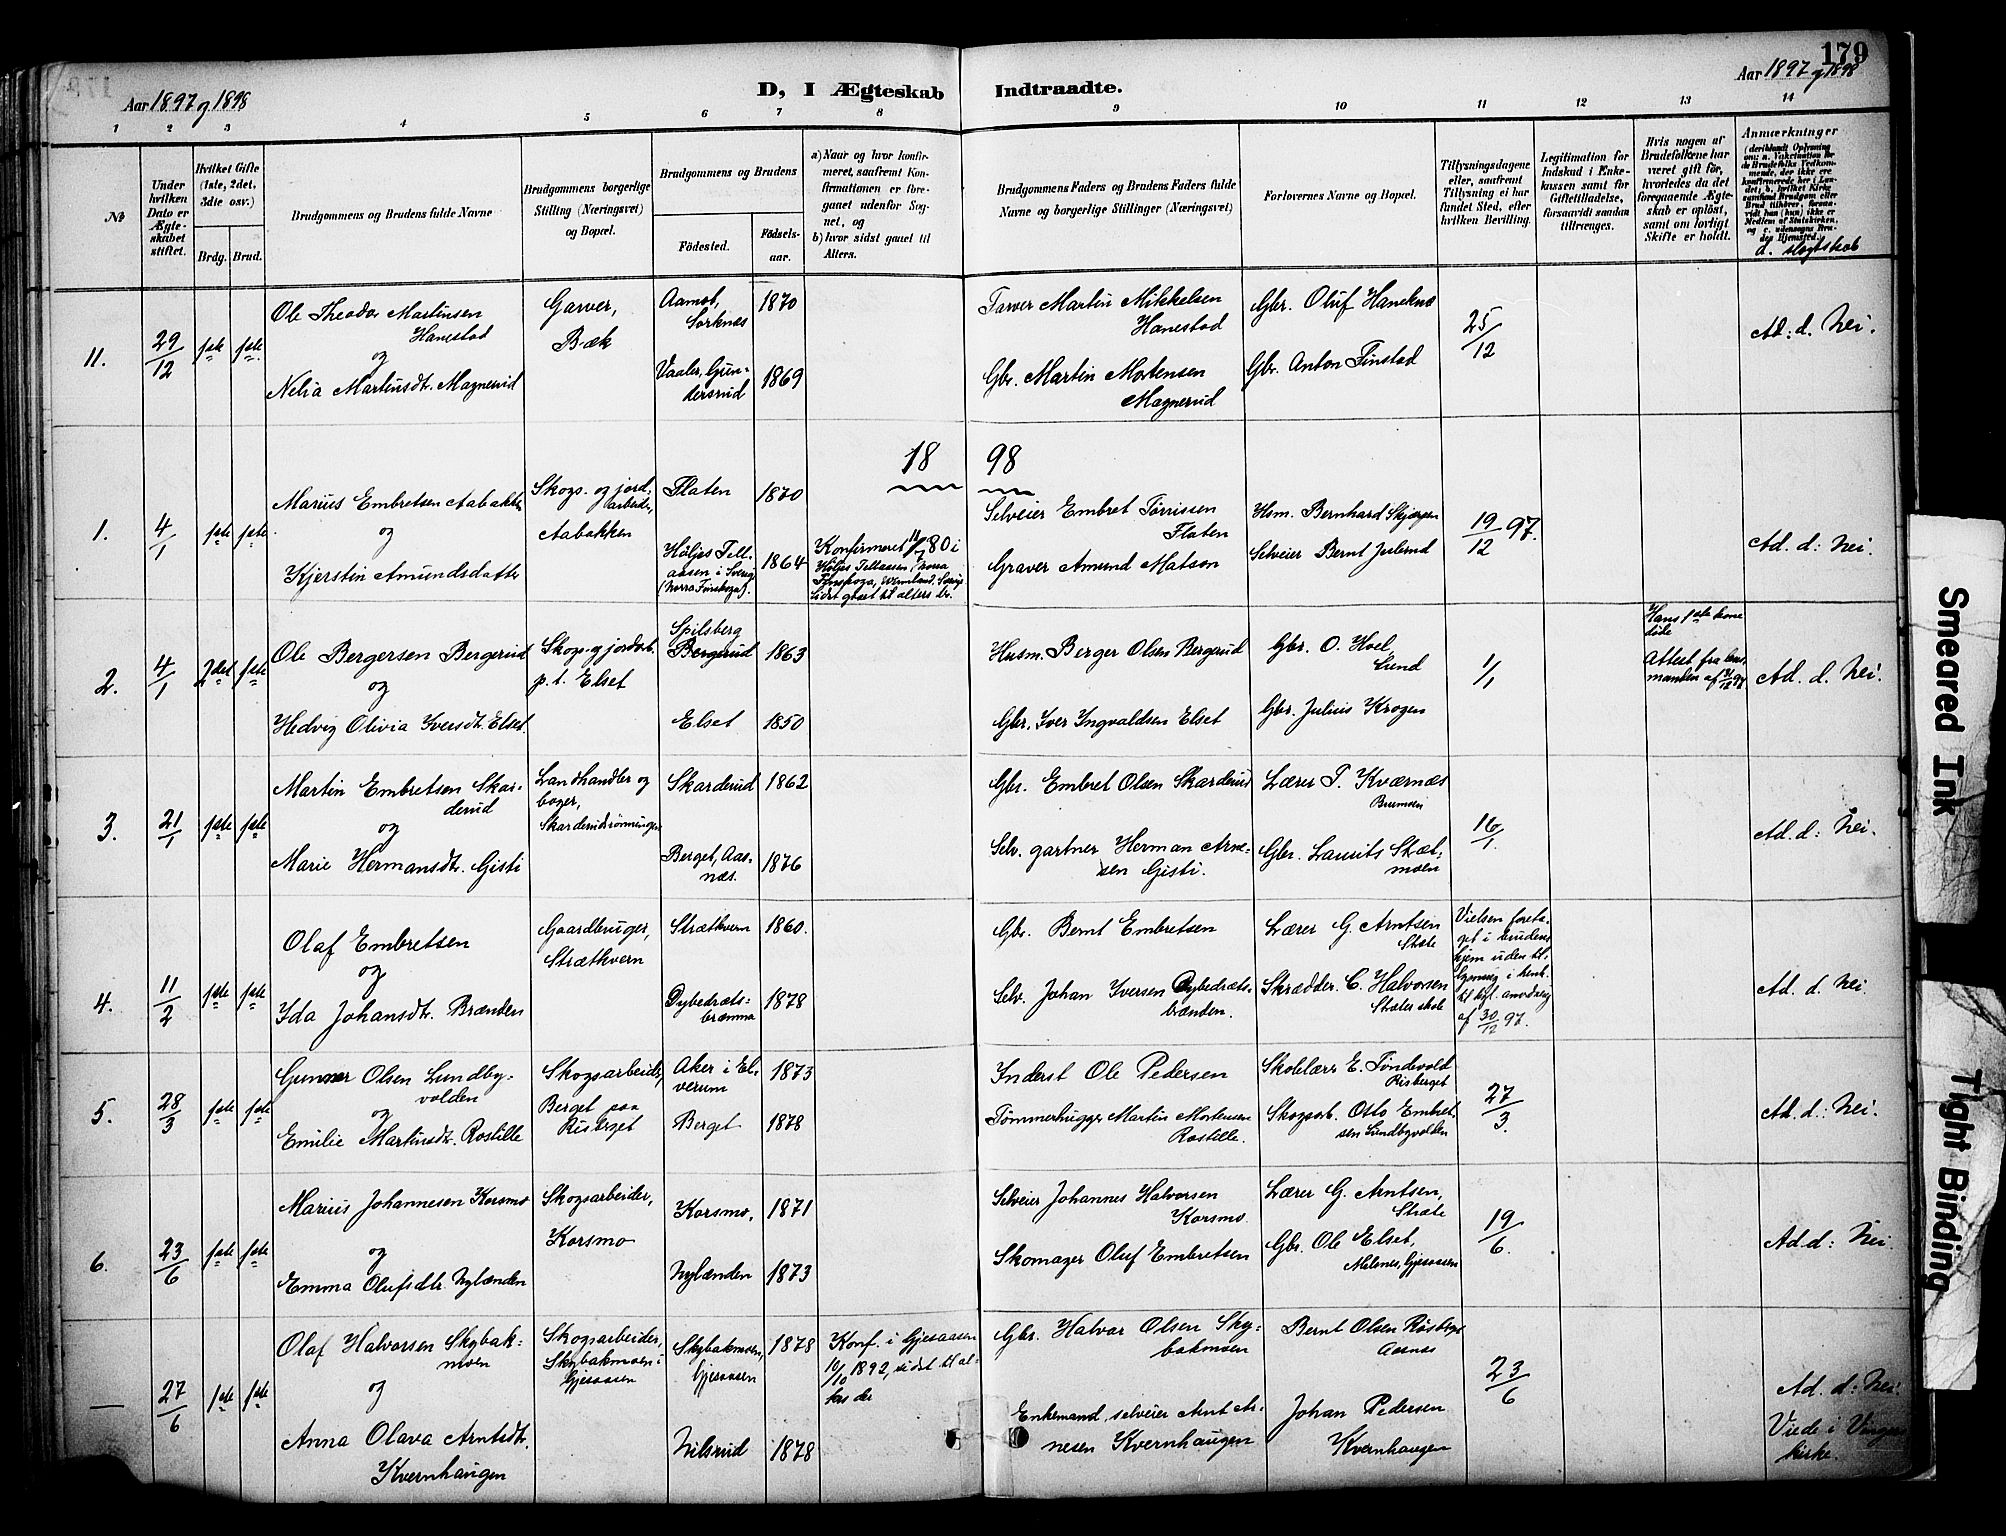 179
Aar 1897 og 1898
D, I Ægteskab Indtraadte.
Aar 1897 og 1898
1 2 3 4 5 6 7 8 9 10 11 12 13 14
No
Under hvilken Dato er Ægteskabet stiftet.
Hvilket Gifte (1ste, 2det, 3die osv.)
Brdg. Brud.
Brudgommens og Brudens fulde Navne
Brudgommens borgerlige Stilling (Næringsvei) og Bopæl.
Brudgommens og Brudens
Fødested.
Fødselsaar.
a) Naar og hvor konfirmeret, saafremt Konfirmationen er foregaaet udenfor Sognet, og
b) hvor sidst gaaet til Alters.
Brudgommens Faders og Brudens Faders fulde Navne og borgerlige Stillinger (Næringsvei)
Forlovernes Navne og Bopæl.
Tillysningsdagene eller, saafremt Tillysning ei har fundet Sted, efter hvilken Bevilling.
Legitimation for Indskud i Enkekassen samt for Giftetilladelse, forsaavidt saadan tiltrænges.
Hvis nogen af Brudefolkene har været gift før, hvorledes da det foregaaende Ægteskab er opløst, samt om lovligt Skifte er holdt.
Anmærkninger
d. slegtskab
11. 29/12 1ste 1ste
Ole Theodor Martinsen Hanestad
og
Nelia Martinsdt. Magnerud
Garver, Bæk
Aamot, Sorknæs 1870
Vaaler, Gundersrud 1869
Garver Martin Mikkelsen Hanestad
Gbr. Martin Mortensen Magnerud
Gbr. Oluf Haneknæ
Gbr. Anton Finstad
25/12
Ad. d. Nei.
18 98
1. 4/1 1ste 1ste
Marius Embretsen Aabakken
og
Kjerstin Amundsdatter
Skogs. og jordarbeider, Aabakken
Flaten 1870
Höljes Tellaasen i Sverig (Norra Finskoga). 1864
Konfirmeret 11/7 80 i Höljes Tellaasen, Norra Finskoga, Wermland, Sverig. Sidst gaaet til alters do.
Selveier Embret Tørrissen Flaten
Graver Amund Matson
Hsm. Bernhard Skjærpen
Selveier Bernt Julund
19/12 97.
Ad. d: Nei.
2. 4/1 2det 1ste
Ole Bergersen Bergerud
og
Hedvig Olivia Iversdt. Elset
Skogs. og jordarb. p. t. Elset
Spilsberg
Bergerud 1863
Elset 1850
Husm. Berger Olsen Bergerud
Gbr. Iver Ingvaldsen Elset
Gbr. O. Hoel, Lund
Gbr. Julius Krogen
1/1
Hans 1ste kone døde
Attest fra lensmanden af 31/12 97
Ad. d. Nei.
3. 21/1 1ste 1ste
Martin Embretsen Skarderud
og
Marie Hermansdt. Gisti
Landhandler og bager, Skarderudrønningen
Skarderud 1862
Berget, Aasnæs. 1876
Gbr. Embret Olsen Skarderud
Selv. gartner Herman Arnesen Gisti.
Lærer P. Kværnæs Brumoen
Gbr. Laurits Skætmoen
16/1
Ad. d: Nei.
4. 11/2 1ste 1ste
Olaf Embretsen
og
Ida Johansdt. Brænden
Gaardbruger, Stræthvern
Stræthvern 1860.
Dybedrætsbrænna 1878
Gbr. Bernt Embretsen
Selv. Johan Iversen Dybedrætsbrænden.
Lærer G. Arntsen Stræte
Skrædder. C. Halvorsen Stræte skole
Vielsen foretaget i brudens hjem uden tillysning i henh. til kgl. anordning af 30/12 97.
Ad. d. Nei
5. 28/3 1ste 1ste
Gunner Olsen Lundbyvolden
og
Emilie Martinsdt. Rostille
Skogsarbeider, Berget paa Risberget
Aker i Elverum 1873
Berget 1878
Inderst Ole Pedersen
Tømmerhugger Martin Mortensen Rostille.
Skolelærer E. Tøndevold Risberget
Skogsarb. Otto Embretsen Lundbyvolden
27/3
Ad. d.: Nei.
6. 23/6 1ste 1ste
Marius Johannesen Korsmo
og
Emma Olufsdtr. Nylænden
Skogsarbeider, Korsmo
Korsmo. 1871
Nylænden 1873
Selveier Johannes Halvorsen Korsmo.
Skomager Oluf Embretsen
Lærer G. Arntsen, Stræte
Gbr. Ole Elset, Melsnes, Gjesaasen
19/6.
Ad. d: Nei
— 27/6 1ste 1ste
Olaf Halvorsen Skybakmoen
og
Anna Olava Arntsdtr. Kvernhaugen
Skogsarbeider, Skybakmoen i Gjesaasen
Skybakmoen, Gjesaasen 1878
Nilsrud 1878
Konf. i Gjesaasen 10/10 1892, sidst til alters do
Gbr. Halvor Olsen Skybakmoen
Enkemand, selveier Arnt Arnesen Kvernhaugen
Bernt Olsen Risberget Aasnæs
Johan Pedersen Kvernhaugen
23/6
Ad. d: Nei.
Viede i Vinger kirke.
Smeared Ink
Tight Binding